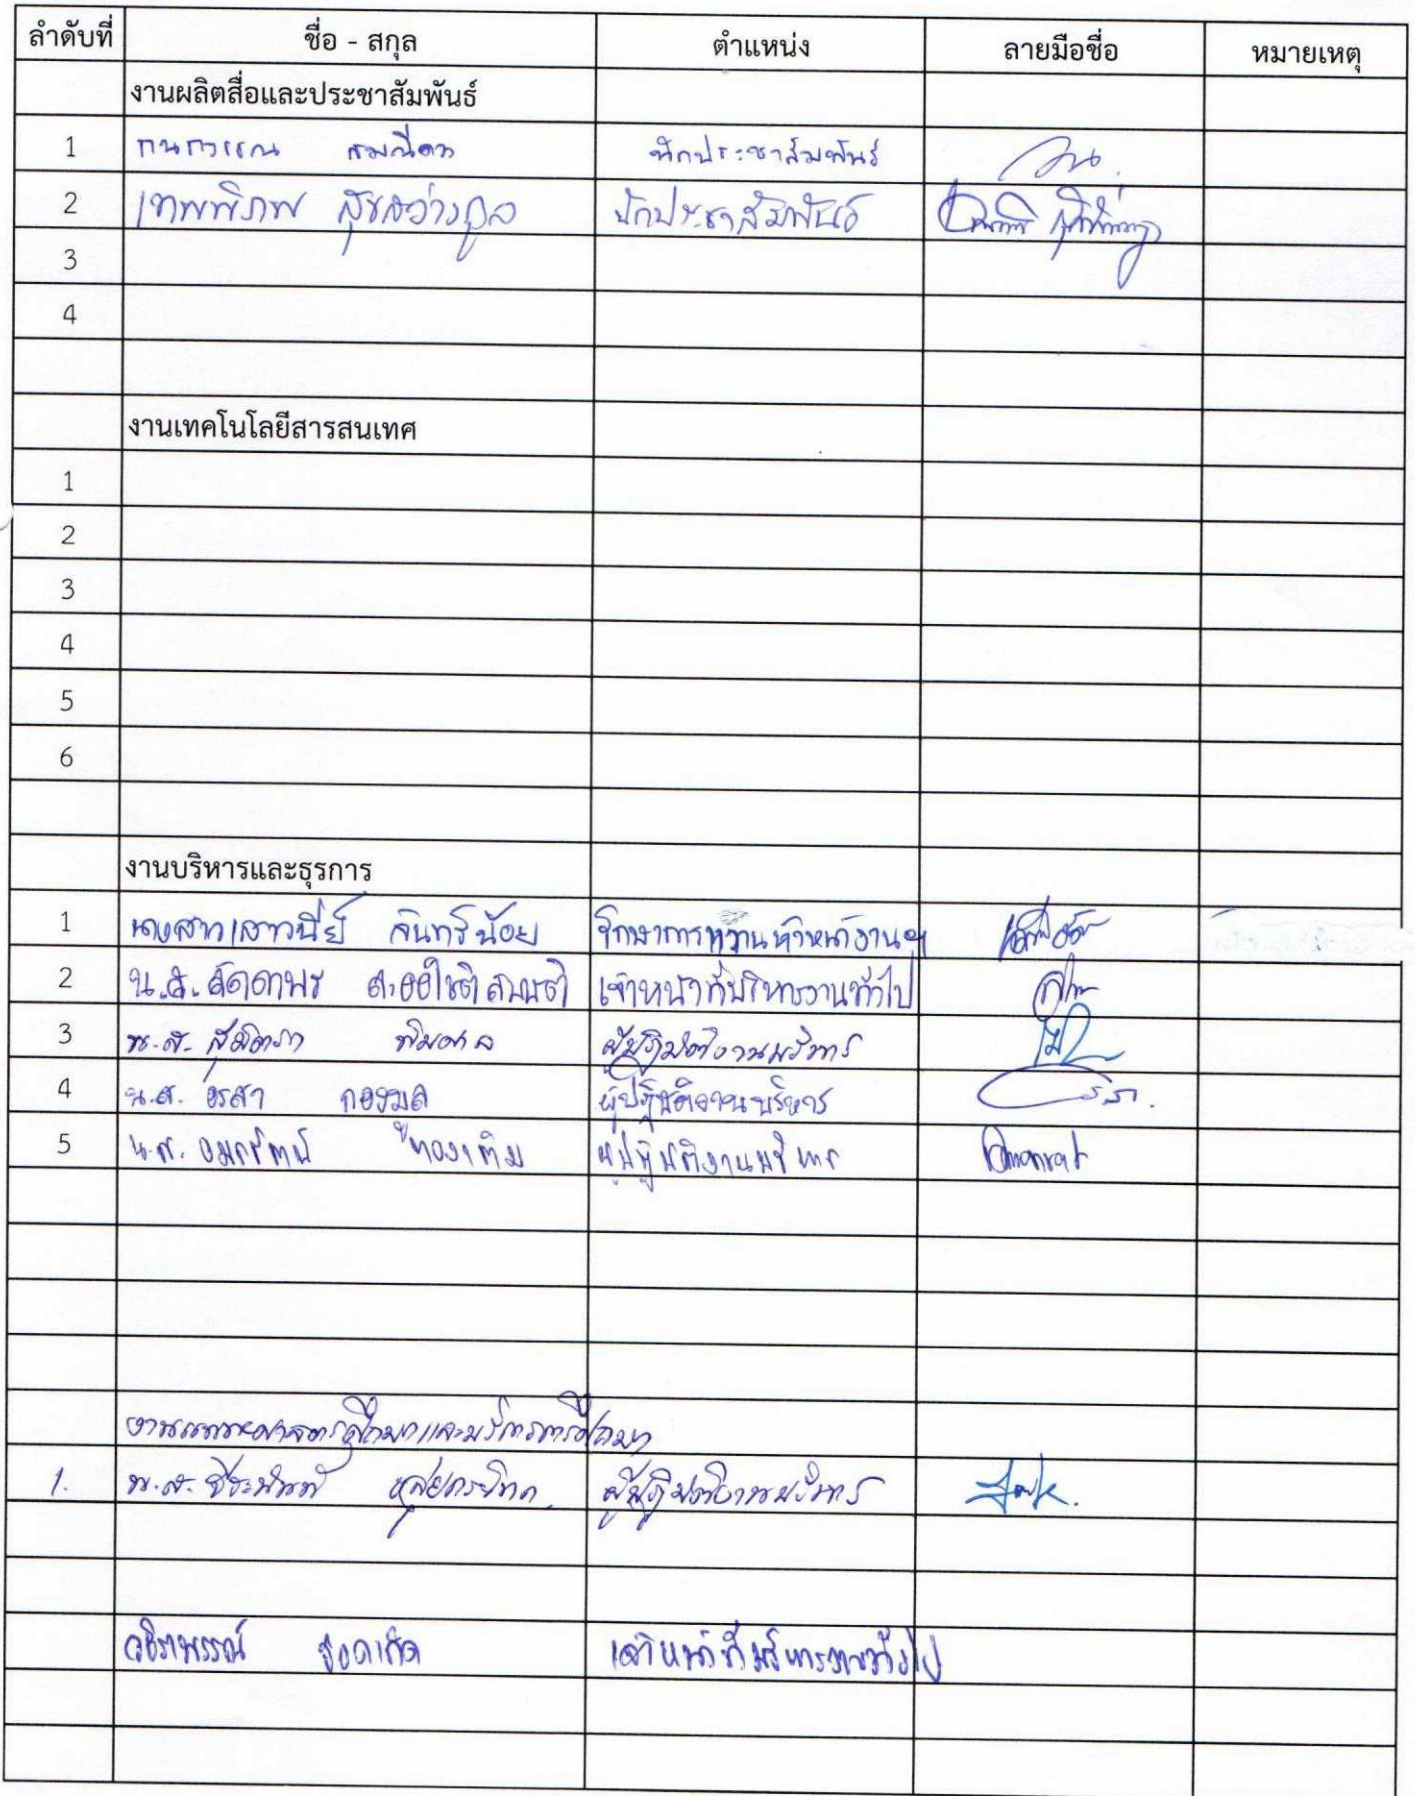 ลำดับที่ ชื่อ - สกุล ตำแหน่ง ลายมือชื่อ หมายเหตุ
งานผลิตสื่อและประชาสัมพันธ์
1 กนกวรรณ นักประชาสัมพันธ์
2 เทพพิภพ สุขสว่างกูล นักประชาสัมพันธ์
3
4
งานเทคโนโลยีสารสนเทศ
1
2
3
4
5
6
งานบริหารและธุรการ
1 นางสาวเสาวนีย์ จันทร์น้อย รักษาการแทนหัวหน้างานฯ
2 น.ส. ลัดดาพร ละออโชติสมบัติ เจ้าหน้าที่บริหารงานทั่วไป
3 น.ส. สุมิตรา พิมดล ผู้ปฏิบัติงานบริหาร
4 น.ส. อรสา กองมูล ผู้ปฏิบัติงานบริหาร
5 น.ส. อมรรัตน์ ทองเติม ผู้ปฏิบัติงานบริหาร Amonrat
งานแพทยศาสตรศึกษาและบริการการศึกษา
1. น.ส. ผู้ปฏิบัติงานบริหาร
วชิราพรรณ์ รอดเกิด เจ้าหน้าที่บริหารงานทั่วไป